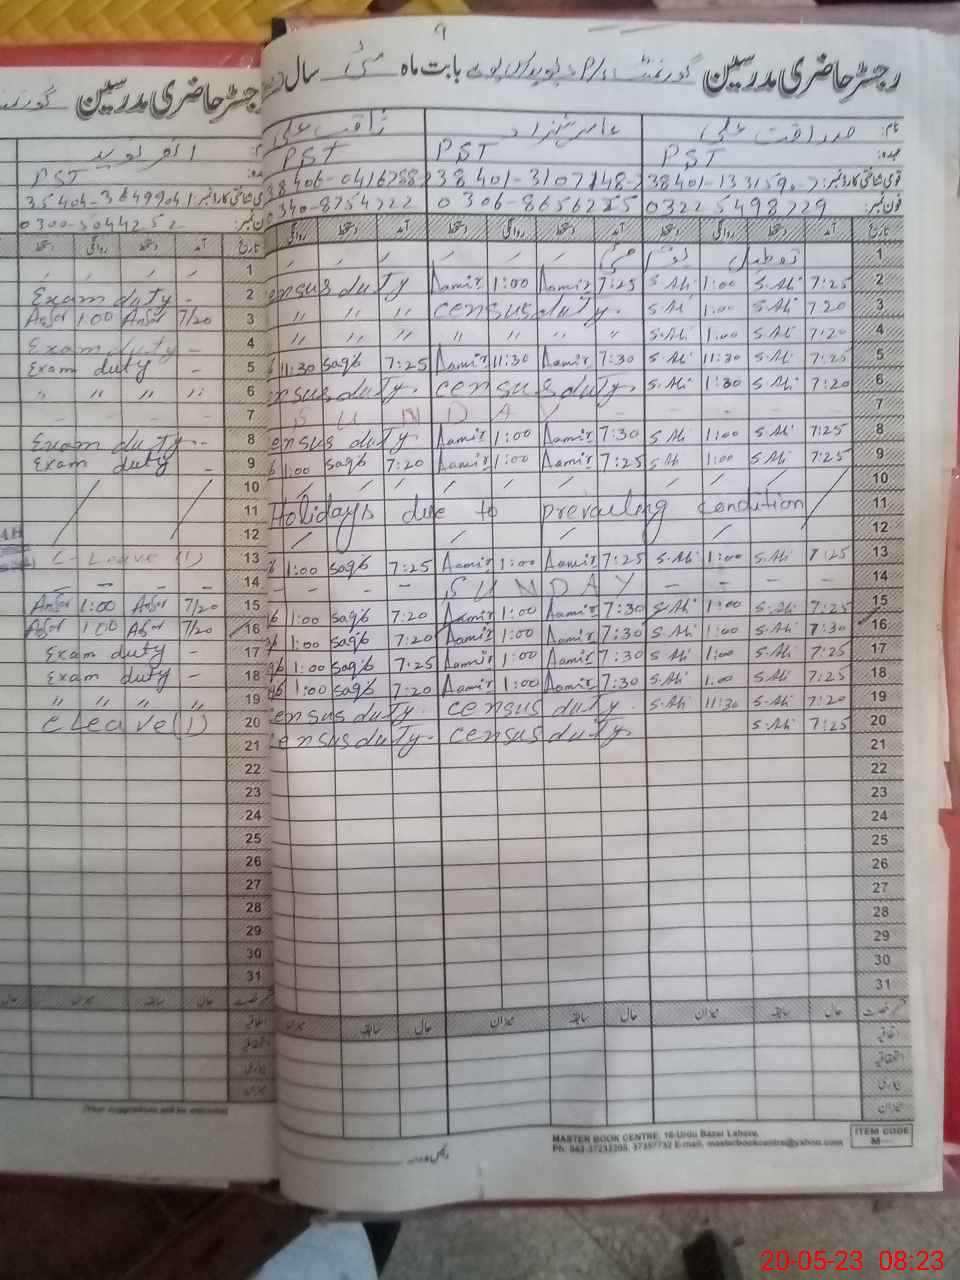 9
رجسٹر حاضری مدرسین گورنمنٹ P/S بابت ماہ مئی سال
نام: صداقت علی عامر شہزاد ثاقب علی
عہدہ: PST PST PST
قومی شناختی کارڈ نمبر: 38401-3107148-
فون نمبر: 03225498729 0306-8656255
تاریخ آمد دستخط روانگی دستخط آمد دستخط روانگی دستخط آمد دستخط روانگی
1 تعطیل یوم مئی
ensus duty Aamir 1:00 Aamir 7:25 S.Ali 1:00 S.Ali 7:25 2
" " " census duty. S.Ali 1:00 S.Ali 7:20 3
" " " " " " " S.Ali 1:00 S.Ali 7:20 4
11:30 saqb 7:25 Aamir 11:30 Aamir 7:30 S.Ali 11:30 S.Ali 7:25 5
nsus duty. census duty. S.Ali 1:30 S.Ali 7:20 6
SUNDAY 7
ensus duty. Aamir 1:00 Aamir 7:30 S.Ali 1:00 S.Ali 7:25 8
1:00 saqb 7:20 Aamir 1:00 Aamir 7:25 S.Ali 1:00 S.Ali 7:25 9
10
Holidays due to prevailing condition 11
12
1:00 saqb 7:25 Aamir 1:00 Aamir 7:25 S.Ali 1:00 S.Ali 7:25 13
- - - SUNDAY - - - - 14
1:00 saqb 7:20 Aamir 1:00 Aamir 7:30 S.Ali 1:00 S.Ali 7:25 15
1:00 saqb 7:20 Aamir 1:00 Aamir 7:30 S.Ali 1:00 S.Ali 7:30 16
1:00 saqb 7:25 Aamir 1:00 Aamir 7:30 S.Ali 1:00 S.Ali 7:25 17
1:00 saqb 7:20 Aamir 1:00 Aamir 7:30 S.Ali 1:00 S.Ali 7:25 18
ensus duty. census duty. S.Ali 11:30 S.Ali 7:20 19
ensus duty. census duty. S.Ali 7:25 20
21
22
23
24
25
26
27
28
29
30
31
حال سابقہ میزان حال سابقہ میزان حال سابقہ میزان
اتفاقیہ
استحقاقیہ
بیماری
میزان
MASTER BOOK CENTRE, 16-Urdu Bazar Lahore.
Ph: 042-37232205, 37357732 E-mail: masterbookcentre@yahoo.com
ITEM CODE
M
رجسٹر حاضری مدرسین
PST
35404-3649904
0300-5044252
تاریخ آمد دستخط روانگی دستخط
1
Exam duty - 2
Ansr 1:00 Ansr 7/20 3
Exam duty - 4
Exam duty - 5
" " " " 6
- - - - 7
Exam duty - 8
Exam duty - 9
10
11
12
C-Leave (1) 13
- - - - 14
Ansr 1:00 Ansr 7/20 15
Ansr 1:00 Ansr 7/20 16
Exam duty - 17
Exam duty - 18
" " " " 19
C Leave (1) 20
21
22
23
24
25
26
27
28
29
30
31
حال سابقہ میزان
اتفاقیہ
استحقاقیہ
بیماری
میزان
(Your suggestions will be welcomed)
20-05-23 08:23